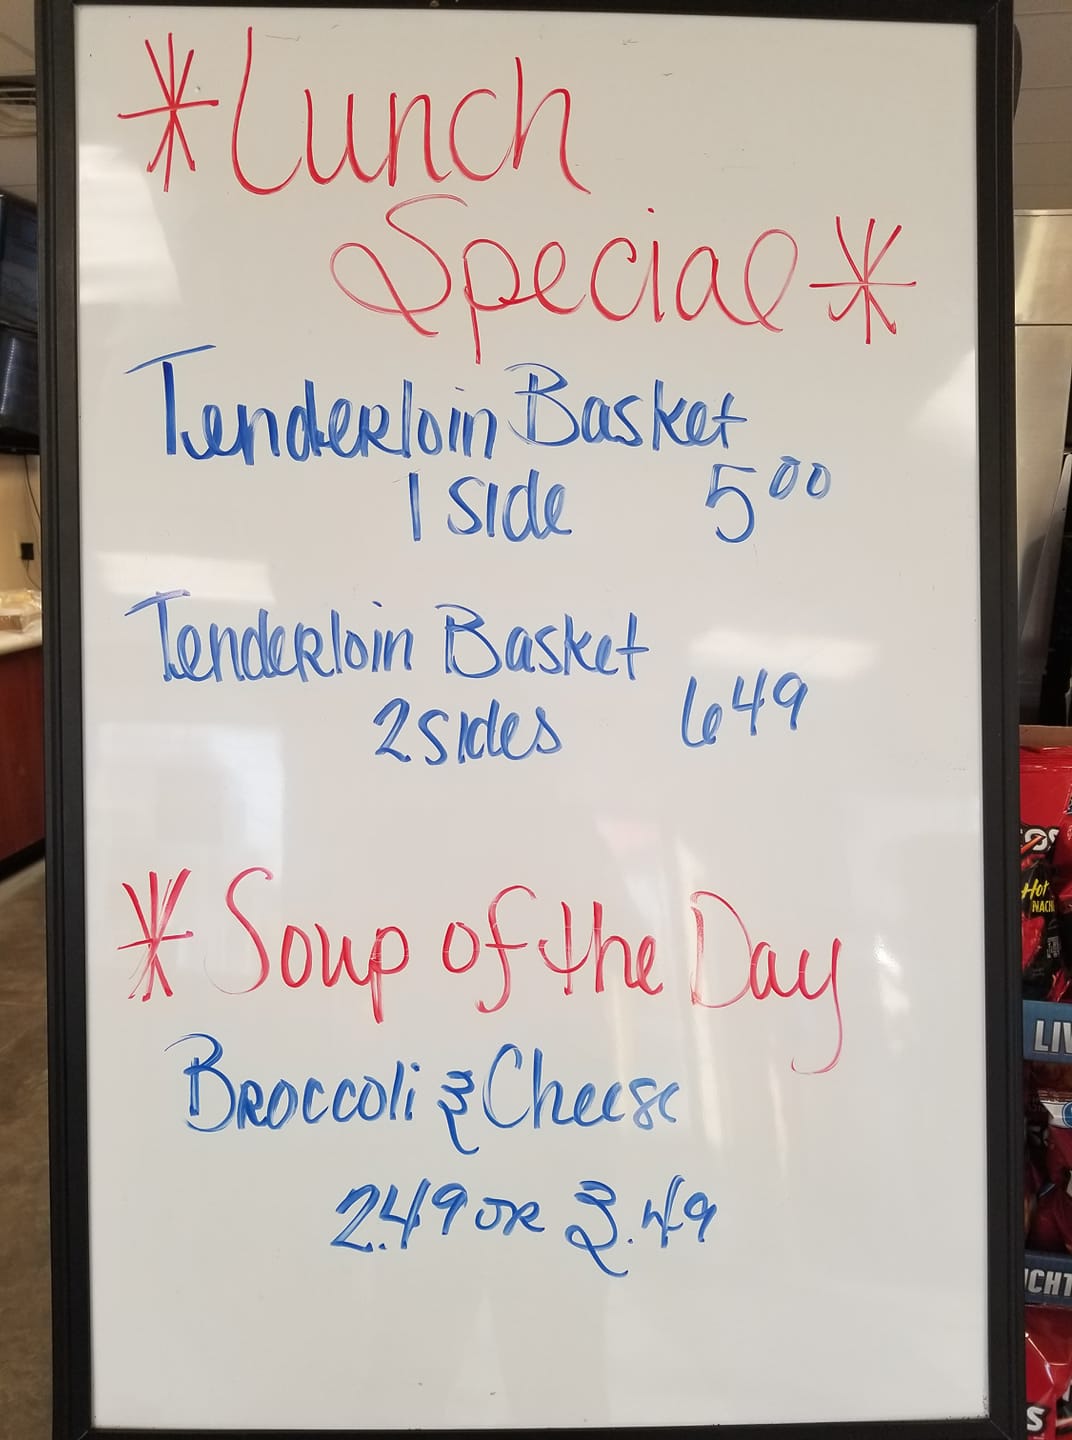 *Lunch
Special*
Tenderloin Basket
1 side 5 00
Tenderloin Basket
2 sides 6 49
*Soup of the Day
Broccoli & Cheese
2.49 or 3.49
Hot
NACH
LIV